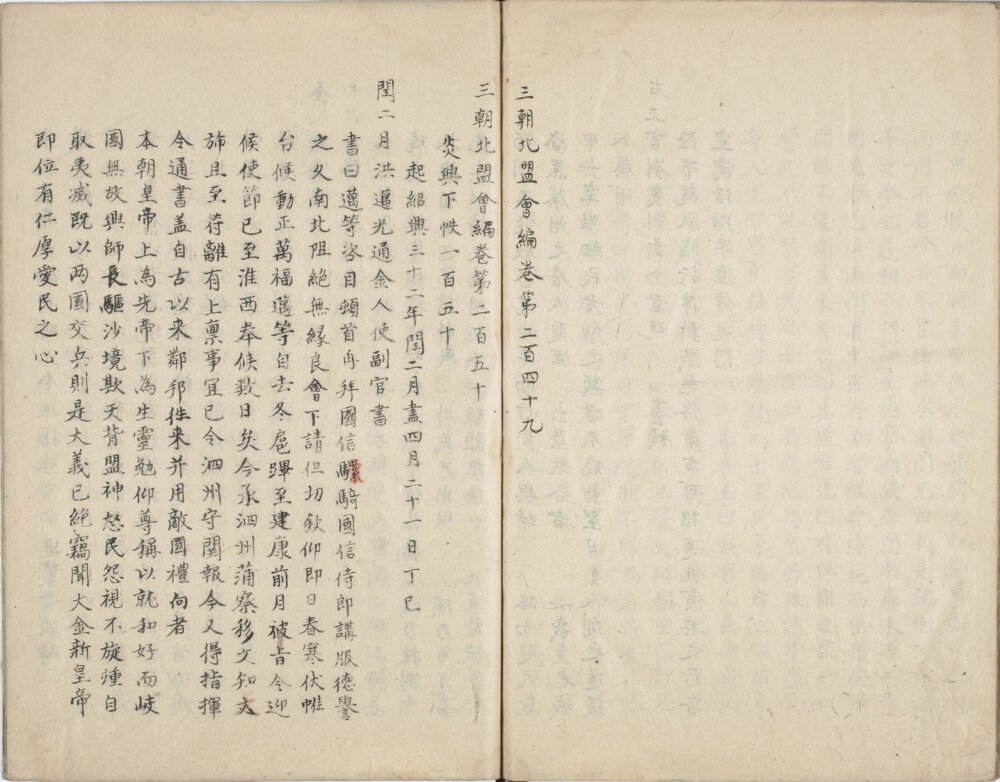 三朝北盟會編卷第二百四十九
三朝北盟會編卷第二百五十
炎興下帙一百五十
起紹興三十二年閏二月盡四月二十一日丁巳
閏二月洪邁光通金人使副官書
書曰邁等咨目頓首再拜國信驃騎國信侍郎講服德譽
之久南北阻絕無緣良會下請但切欽仰即日春寒伏惟
台候動正萬福邁等自去冬扈蹕至建康前月被旨令迎
候使節已至淮西奉候數日矣今承泗州蒲察移文知大
斾且至待離有上稟事宜已令泗州守関報今又得指揮
令通書盖自古以来鄰邦徃来并用敵國禮向者
本朝皇帝上為先帝下為生靈勉仰尊稱以就和好而岐
國無故興師長驅沙境欺天背盟神怒民怨視不旋踵自
取夷滅既以两國交兵則是大義已絶竊聞大金新皇帝
即位有仁厚愛民之心